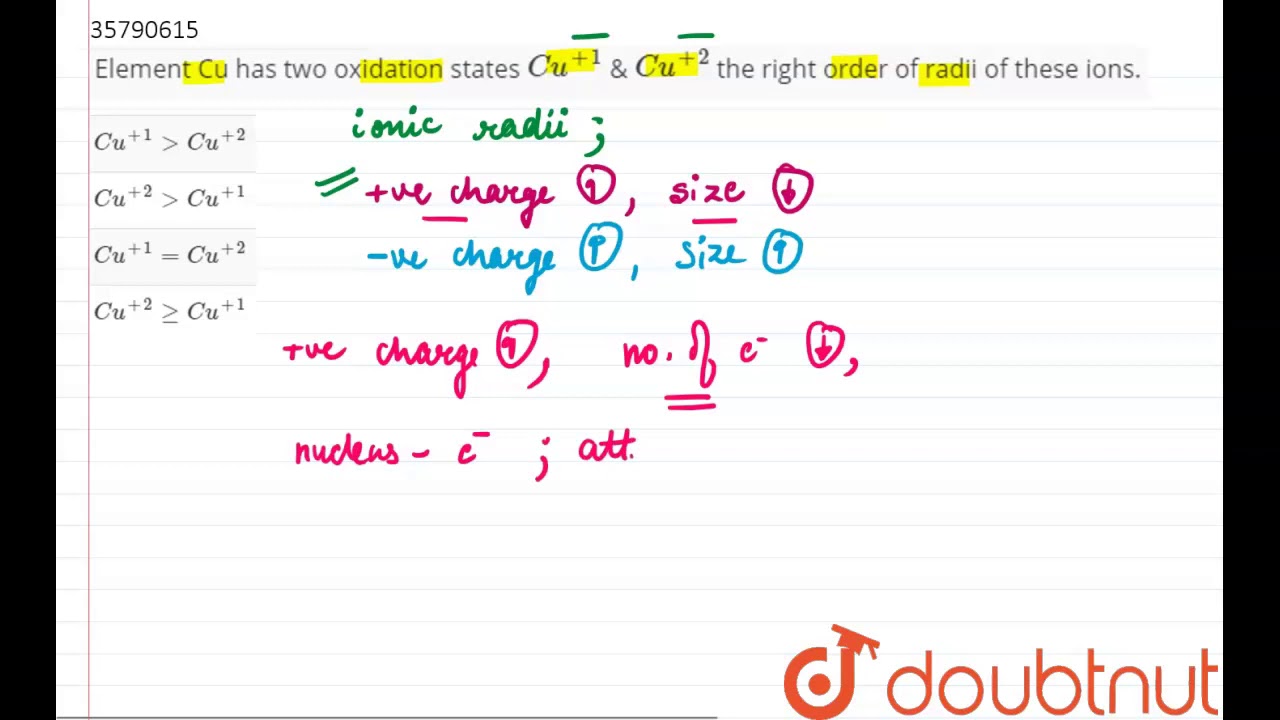 35790615
Element Cu has two oxidation states Cu⁺¹ & Cu⁺² the right order of radii of these ions.
Cu⁺¹ > Cu⁺²
Cu⁺² > Cu⁺¹
Cu⁺¹ = Cu⁺²
Cu⁺² ≥ Cu⁺¹
ionic radii ;
+ve charge ↑, size ↓
-ve charge ↑, size ↑
+ve charge ↑, no. of e⁻ ↓,
nucleus - e⁻ ; att.
doubtnut